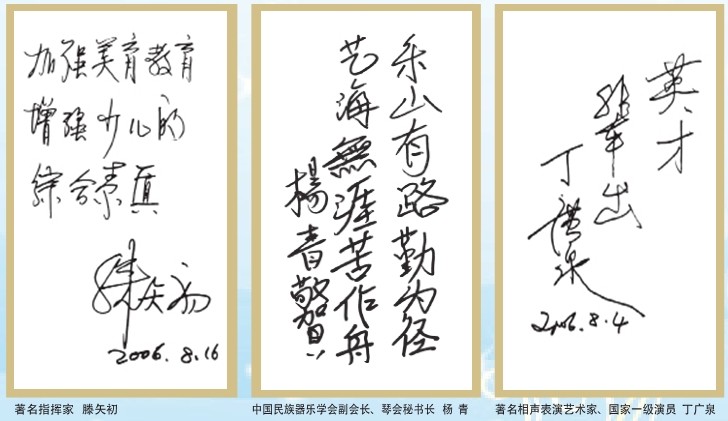 加强美育教育
增强少儿的
综合素质
滕矢初
2006.8.16
著名指挥家 滕矢初
乐山有路勤为径
艺海無涯苦作舟
楊青敬賀
中国民族器乐学会副会长、琴会秘书长 杨 青
英才
辈出
丁广泉
2006.8.4
著名相声表演艺术家、国家一级演员 丁广泉